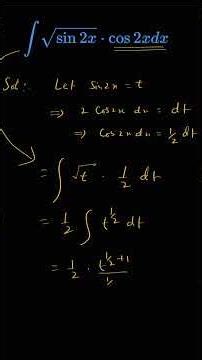 ∫ √sin 2x · cos 2xdx
Sol:. Let sin2x = t
⇒ 2 cos2x dx = dt
⇒ cos2x dx = 1/2 dt
= ∫ √t · 1/2 dt
= 1/2 ∫ t^1/2 dt
= 1/2 · t^(1/2+1)